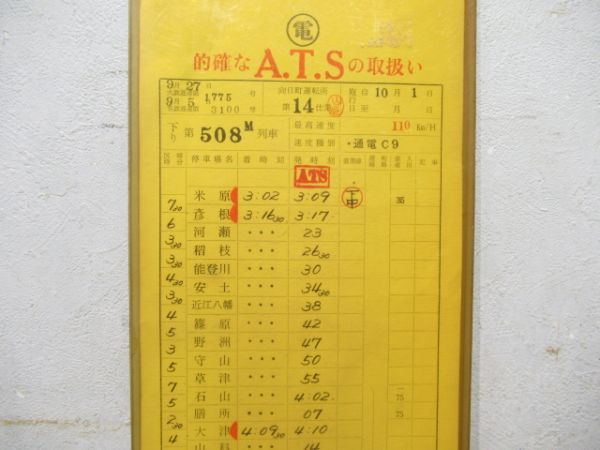 電
的確な A.T.S の取扱い
9月27日 1775号
9月5日 3100号
向日町運転所
第14仕業
自 10月1日
至 月 日
施行
下り 第 508M 列車
最高速度 110 Km/H
速度種別 ・通電C9
停車場名 着時刻 発時刻 着発線 記事
ATS
米原 3:02 3:09 下中 35
7 30
彦根 3:16 30 3:17
6
河瀬 ・・・ 23
3 30
稲枝 ・・・ 26 30
3 30
能登川 ・・・ 30
4 30
安土 ・・・ 34 30
3 30
近江八幡 ・・・ 38
4
篠原 ・・・ 42
5
野洲 ・・・ 47
3
守山 ・・・ 50
5
草津 ・・・ 55
7
石山 ・・・ 4:02 75
5
膳所 ・・・ 07 75
2 30
大津 4:09 30 4:10
4
山科 ・・・ 14